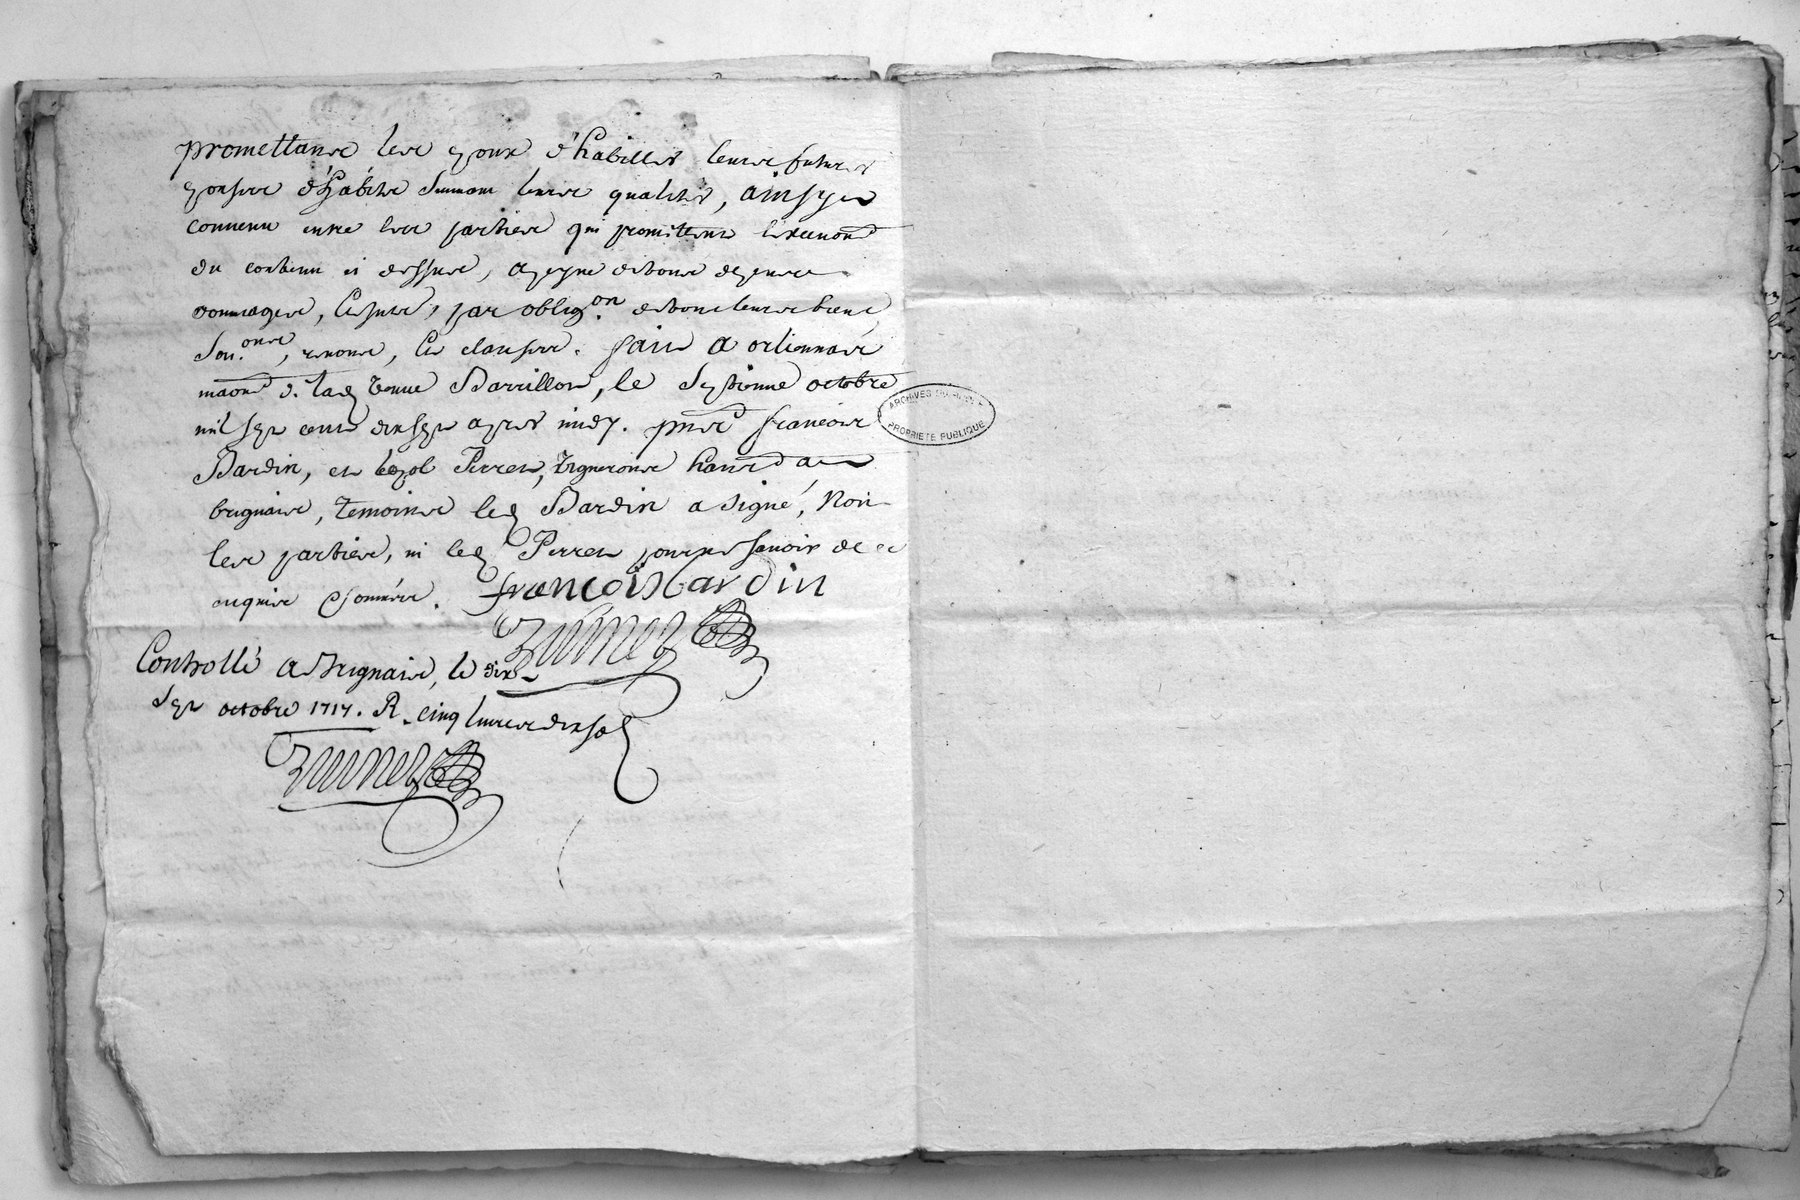 promettans les epoux d'habiller leurs futures
epouses d'habits suivant leurs qualités, ainsy
convenu entre les parties qui promettent
du contenu ci dessus, a peyne de tous depens
dommages, par oblig.on de tous leurs biens
Sou.ons, renon, et clauses. fait a orlienna
maon d. lad veuve Barrillon, le Septieme octobre
mil sept cents dix sept apres midy. pnts francois
Bardin, et Perret, vignerons hants a
brignais, temoins led Bardin a signé, Non
les parties, ni led Perret pour ne savoir de ce
enquis et sommés. francois bardin
Controllé a Brignais, le dix
sept octobre 1717. R. cinq livres dix sol
ARCHIVES DU RHÔNE
PROPRIÉTÉ PUBLIQUE